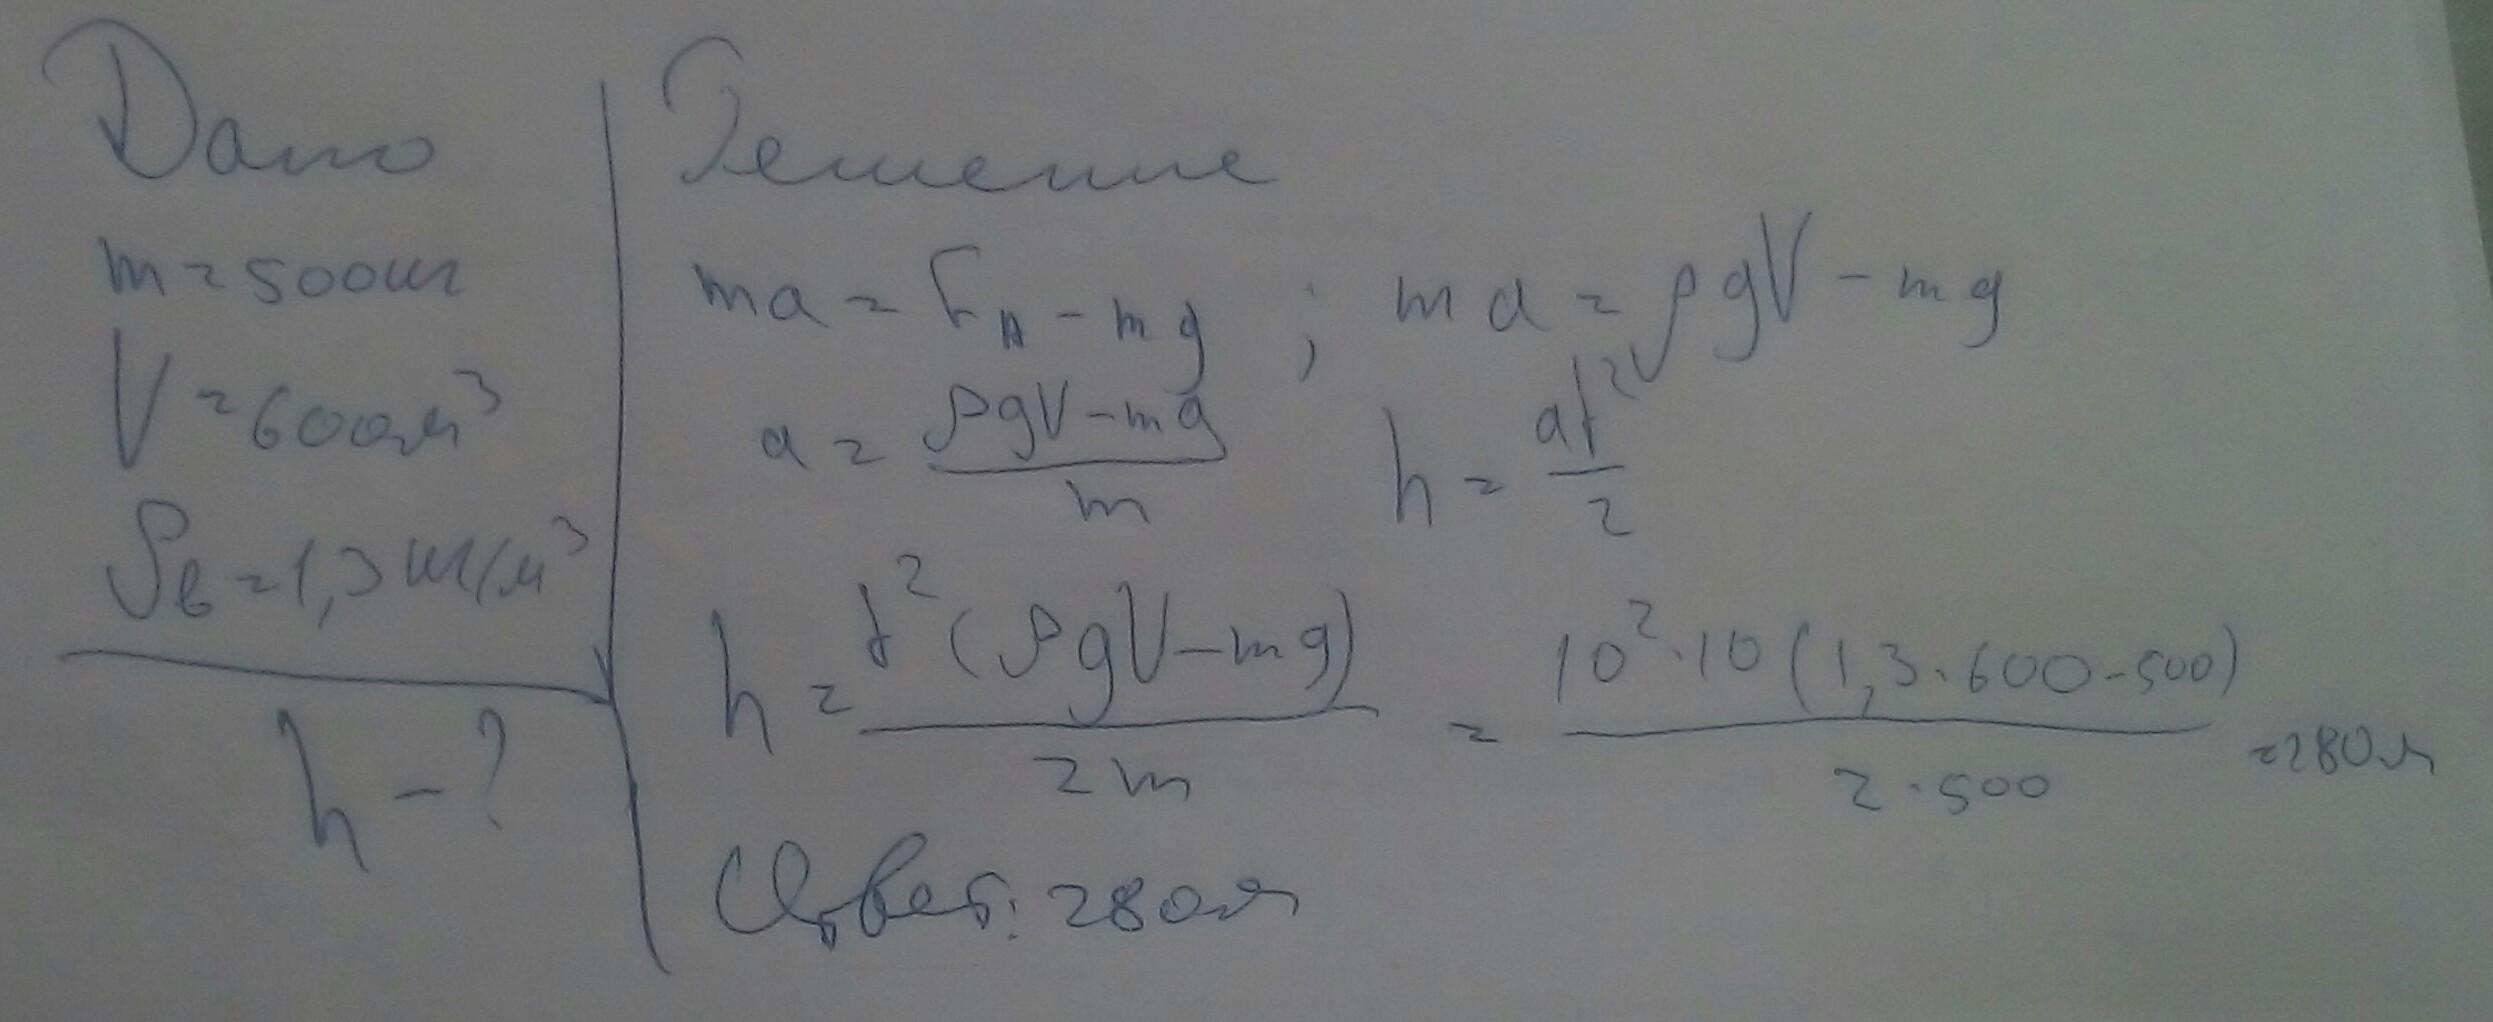 Дано
m=500кг
V=600м³
ρв=1,3кг/м³
h-?
Решение
ma=FA-mg; ma=ρgV-mg
a=(ρgV-mg)/m h=at²/2
h=t²(ρgV-mg)/2m=10²·10(1,3·600-500)/2·500=280м
Ответ: 280м